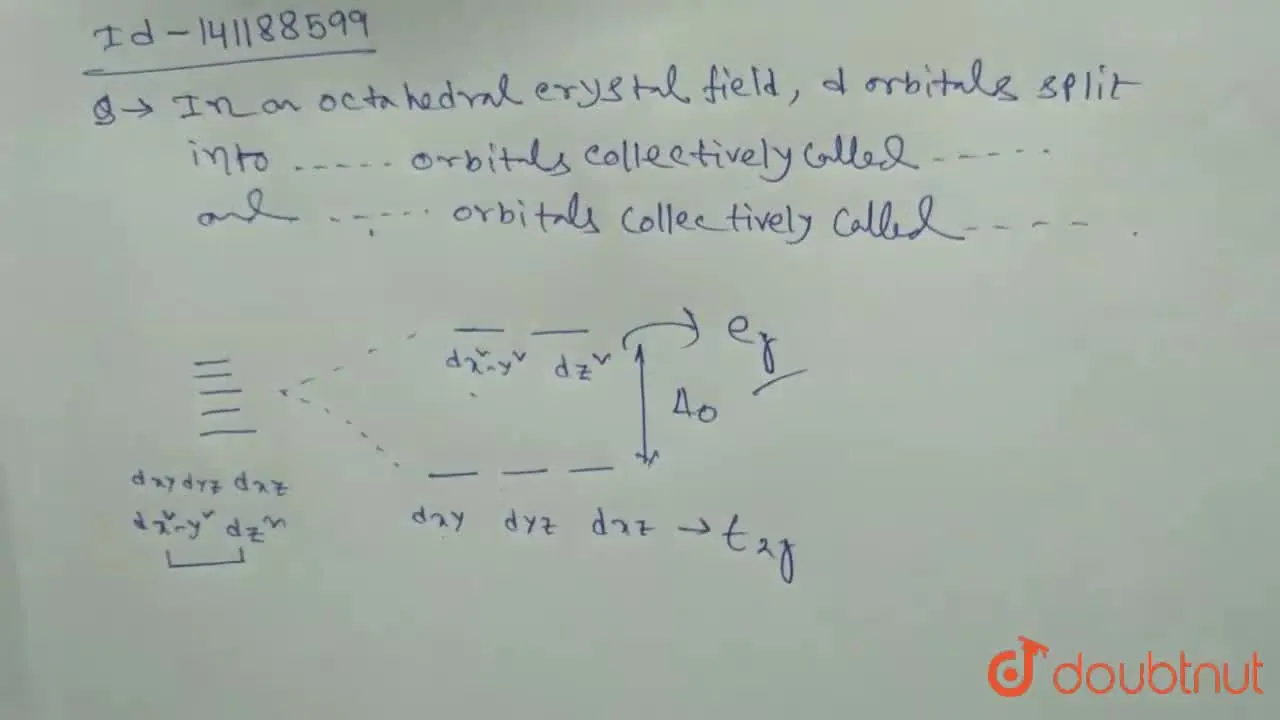 Id - 141188599
Q → In an octahedral crystal field, d orbitals split
into ...... orbitals collectively called ......
and ...... orbitals collectively called ----- .
dx²-y² dz² eg
Δo
dxy dyz dxz
dx²-y² dz²
dxy dyz dxz → t2g
doubtnut